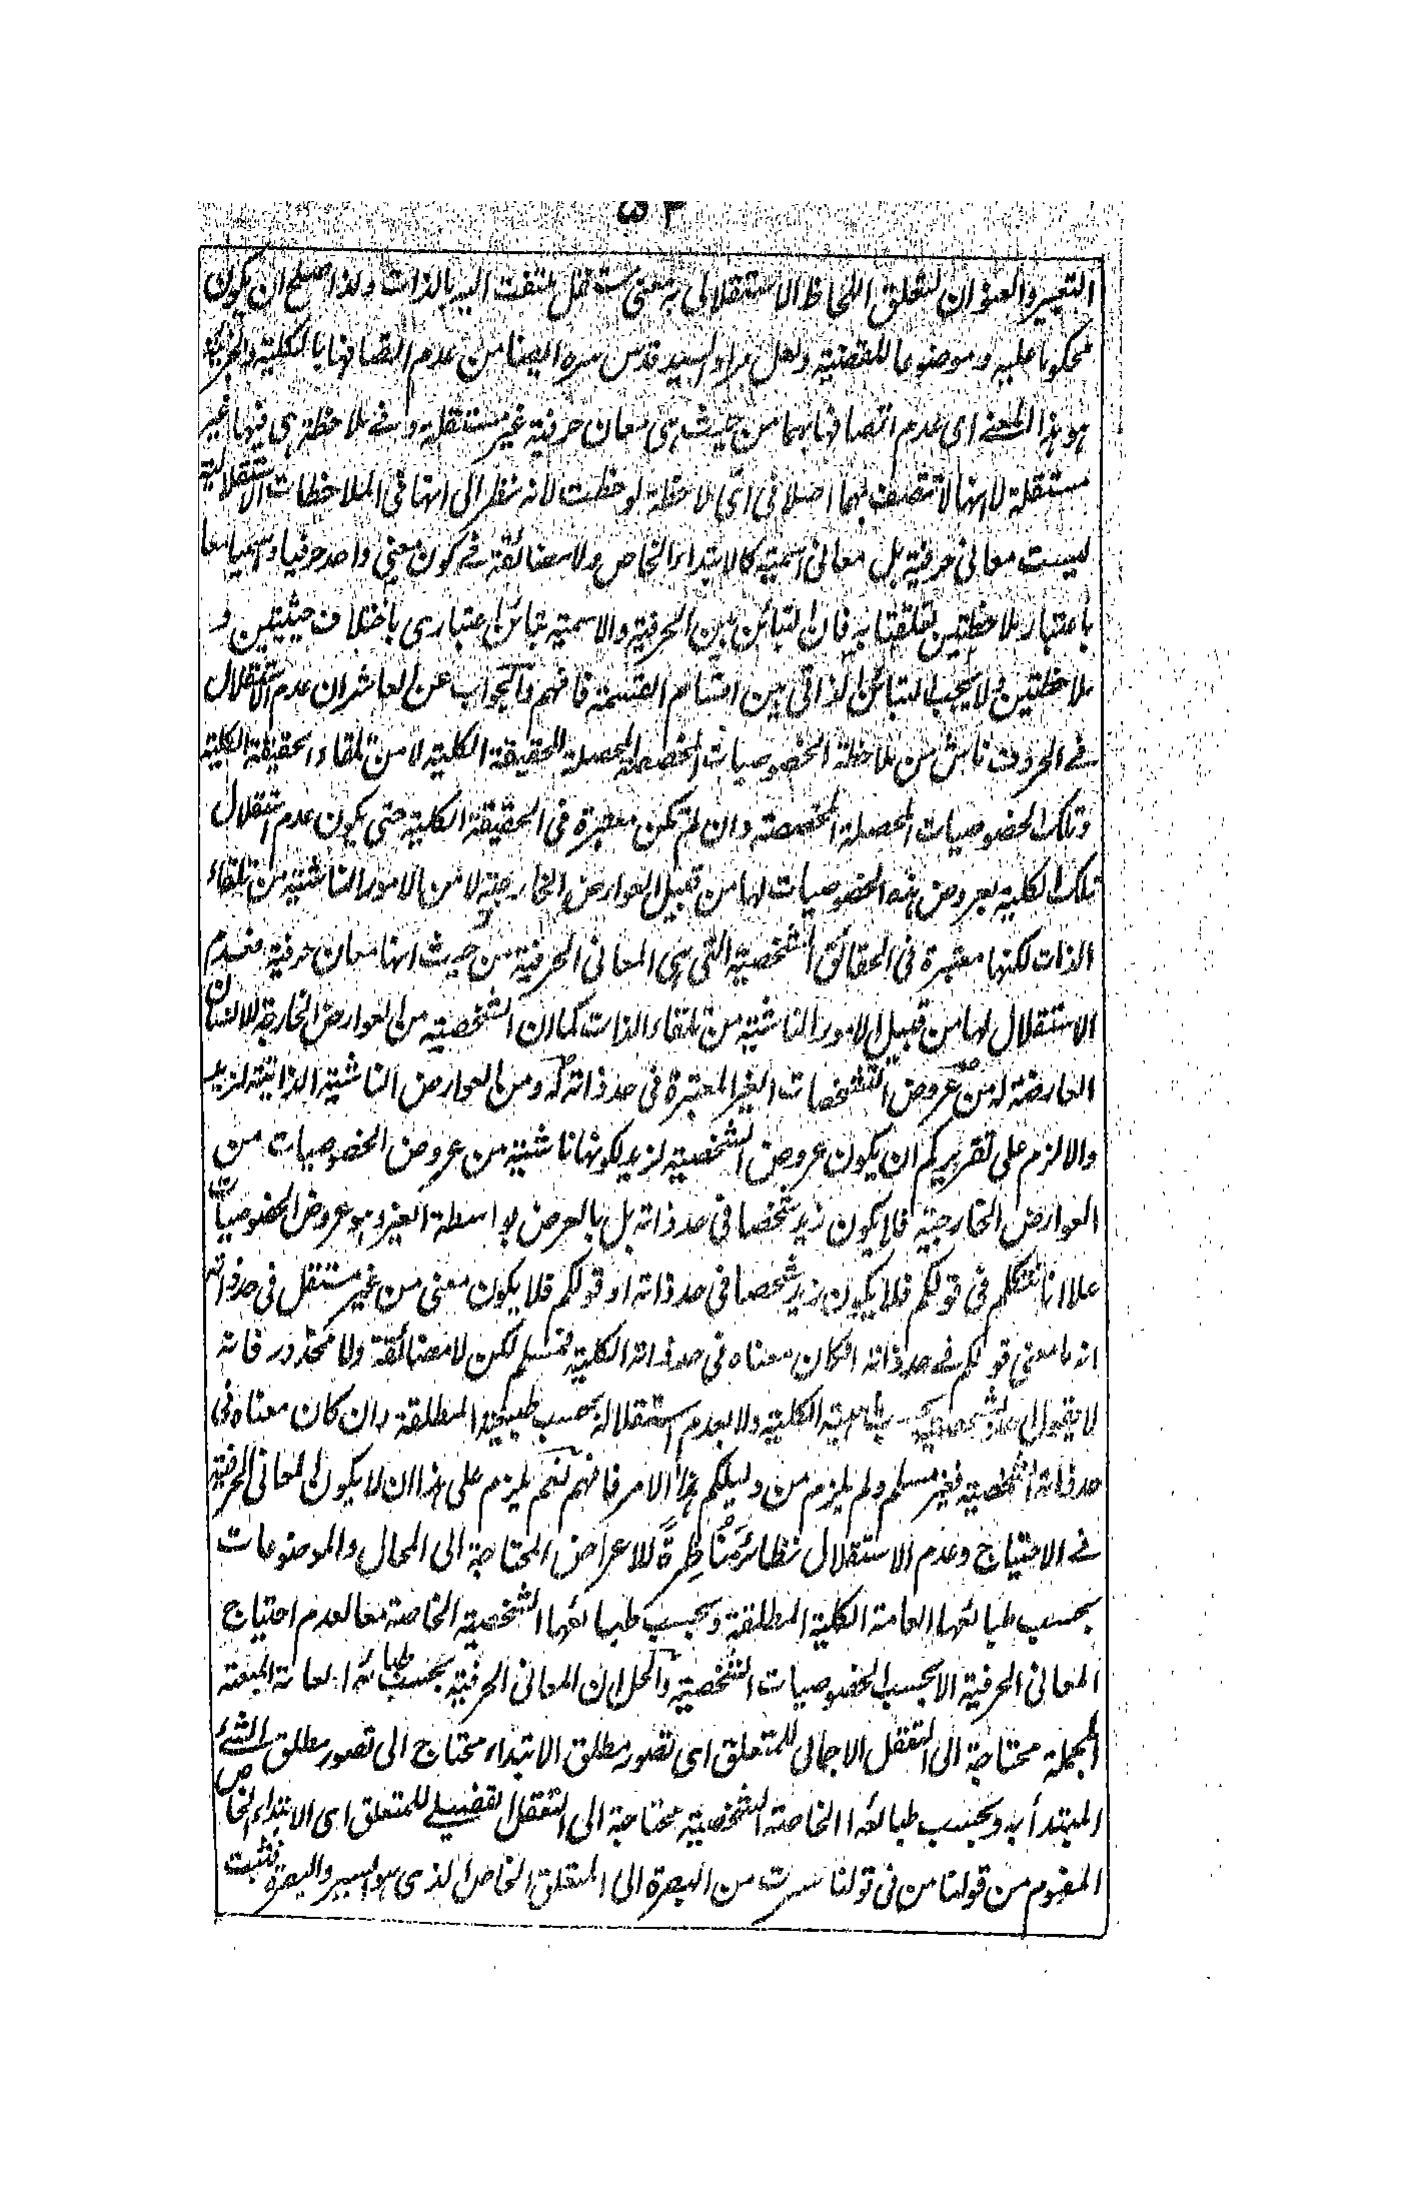 ۵۲
التعبير والعنوان لتعلق اللحاظ الاستقلالى به معنى مستقل ملتفت اليه بالذات ولذا صلح ان يكون
محكوما عليه وموضوعا للقضية ولعل مراد السيد قدس سره ايضا من عدم اتصافها بالكلية والجزئية
هو هذا المعنے اى عدم اتصافها بهما من حيث هى معان حرفية غير مستقلة وفے ملاحظة هى فيها غير
مستقلة لا انها لا تتصف بهما اصلا فى اىّ ملاحظة لوحظت لانه نظر الى انها فى الملاحظات الاستقلالية
ليست معانى حرفية بل معانى اسمية كالابتداء الخاص ولا مضائقة فے كون معنى واحد حرفيا واسميا معا
باعتبار ملاحظتين تعلقتا به فان التبائن بين الحرفية والاسمية تبائن اعتبارى باختلاف حيثيتين و
ملاحظتين ولا يجب التبائن الذاتى بين اقسام القسمة فافهم والجواب عن العاشر ان عدم الاستقلال
فے الحروف ناش من ملاحظة الخصوصيات المخصصة المحصلة للحقيقة الكلية لا من تلقاء الحقيقة الكلية
وتلك الخصوصيات المحصلة المخصصة وان لم تكن معتبرة فى الحقيقة الكلية حتى يكون عدم استقلال
تلك الكلية بعروض هذه الخصوصيات لها من قبيل العوارض الخارجية لا من الامور الناشئية من تلقاء
الذات لكنها معتبرة فى الحقائق الشخصية التى هى المعانى الحرفية من حيث انها معان حرفية فعدم
الاستقلال لها من قبيل الامور الناشئية من تلقاء الذات كما ان الشخصية من العوارض الخارجة للانسان
العارضة له من عروض التشخصات الغير المعتبرة فى حد ذاته له ومن العوارض الناشئية الذاتية لزيد
والا لزم على تقريركم ان يكون عروض الشخصية لزيد لكونها ناشئية من عروض الخصوصيات من
العوارض الخارجية فلا يكون زيد شخصا فى حد ذاته بل بالعرض بواسطة الغير وهو عروض الخصوصيات
علا انا نتكلم فى قولكم فلا يكون زيد شخصا فى حد ذاته او قولكم فلا يكون معنى من غير مستقل فى حد ذاته
انه ما معنى قولكم فے حد ذاته ان كان معناه فى حد ذاته الكلية فمسلم لكن لا مضائقة ولا محذور فانه
لا يقول احد بشخصية زيد بماهيته الكلية ولا بعدم استقلاله بحسب طبيعته المطلقة وان كان معناه فى
حد ذاته الشخصية فغير مسلم ولم يلزم من دليلكم هذا الامر فافهم نعم يلزم على هذا ان لا يكون المعانى الحرفية
فے الاحتياج وعدم الاستقلال نظائرَ مُناظِرةً للاعراض المحتاجة الى المحال والموضوعات
بحسب طبائعها العامة الكلية المطلقة وبحسب طبائعها الشخصية الخاصة معا لعدم احتياج
المعانى الحرفية الا بحسب الخصوصيات الشخصية والحل ان المعانى الحرفية بحسب طبائعها العامة
المجملة محتاجة الى التعقل الاجمالى للمتعلق اى تصور مطلق الابتداء محتاج الى تصور مطلق الشئ
المبتدأ به وبحسب طبائعها الخاصة الشخصية محتاجة الى التعقل التفصيلے للمتعلق اى الابتداء الخاص
المفهوم من قولنا من فى قولنا سرت من البصرة الى المتعلق الخاص الذى هو السير والبصرة فثبت